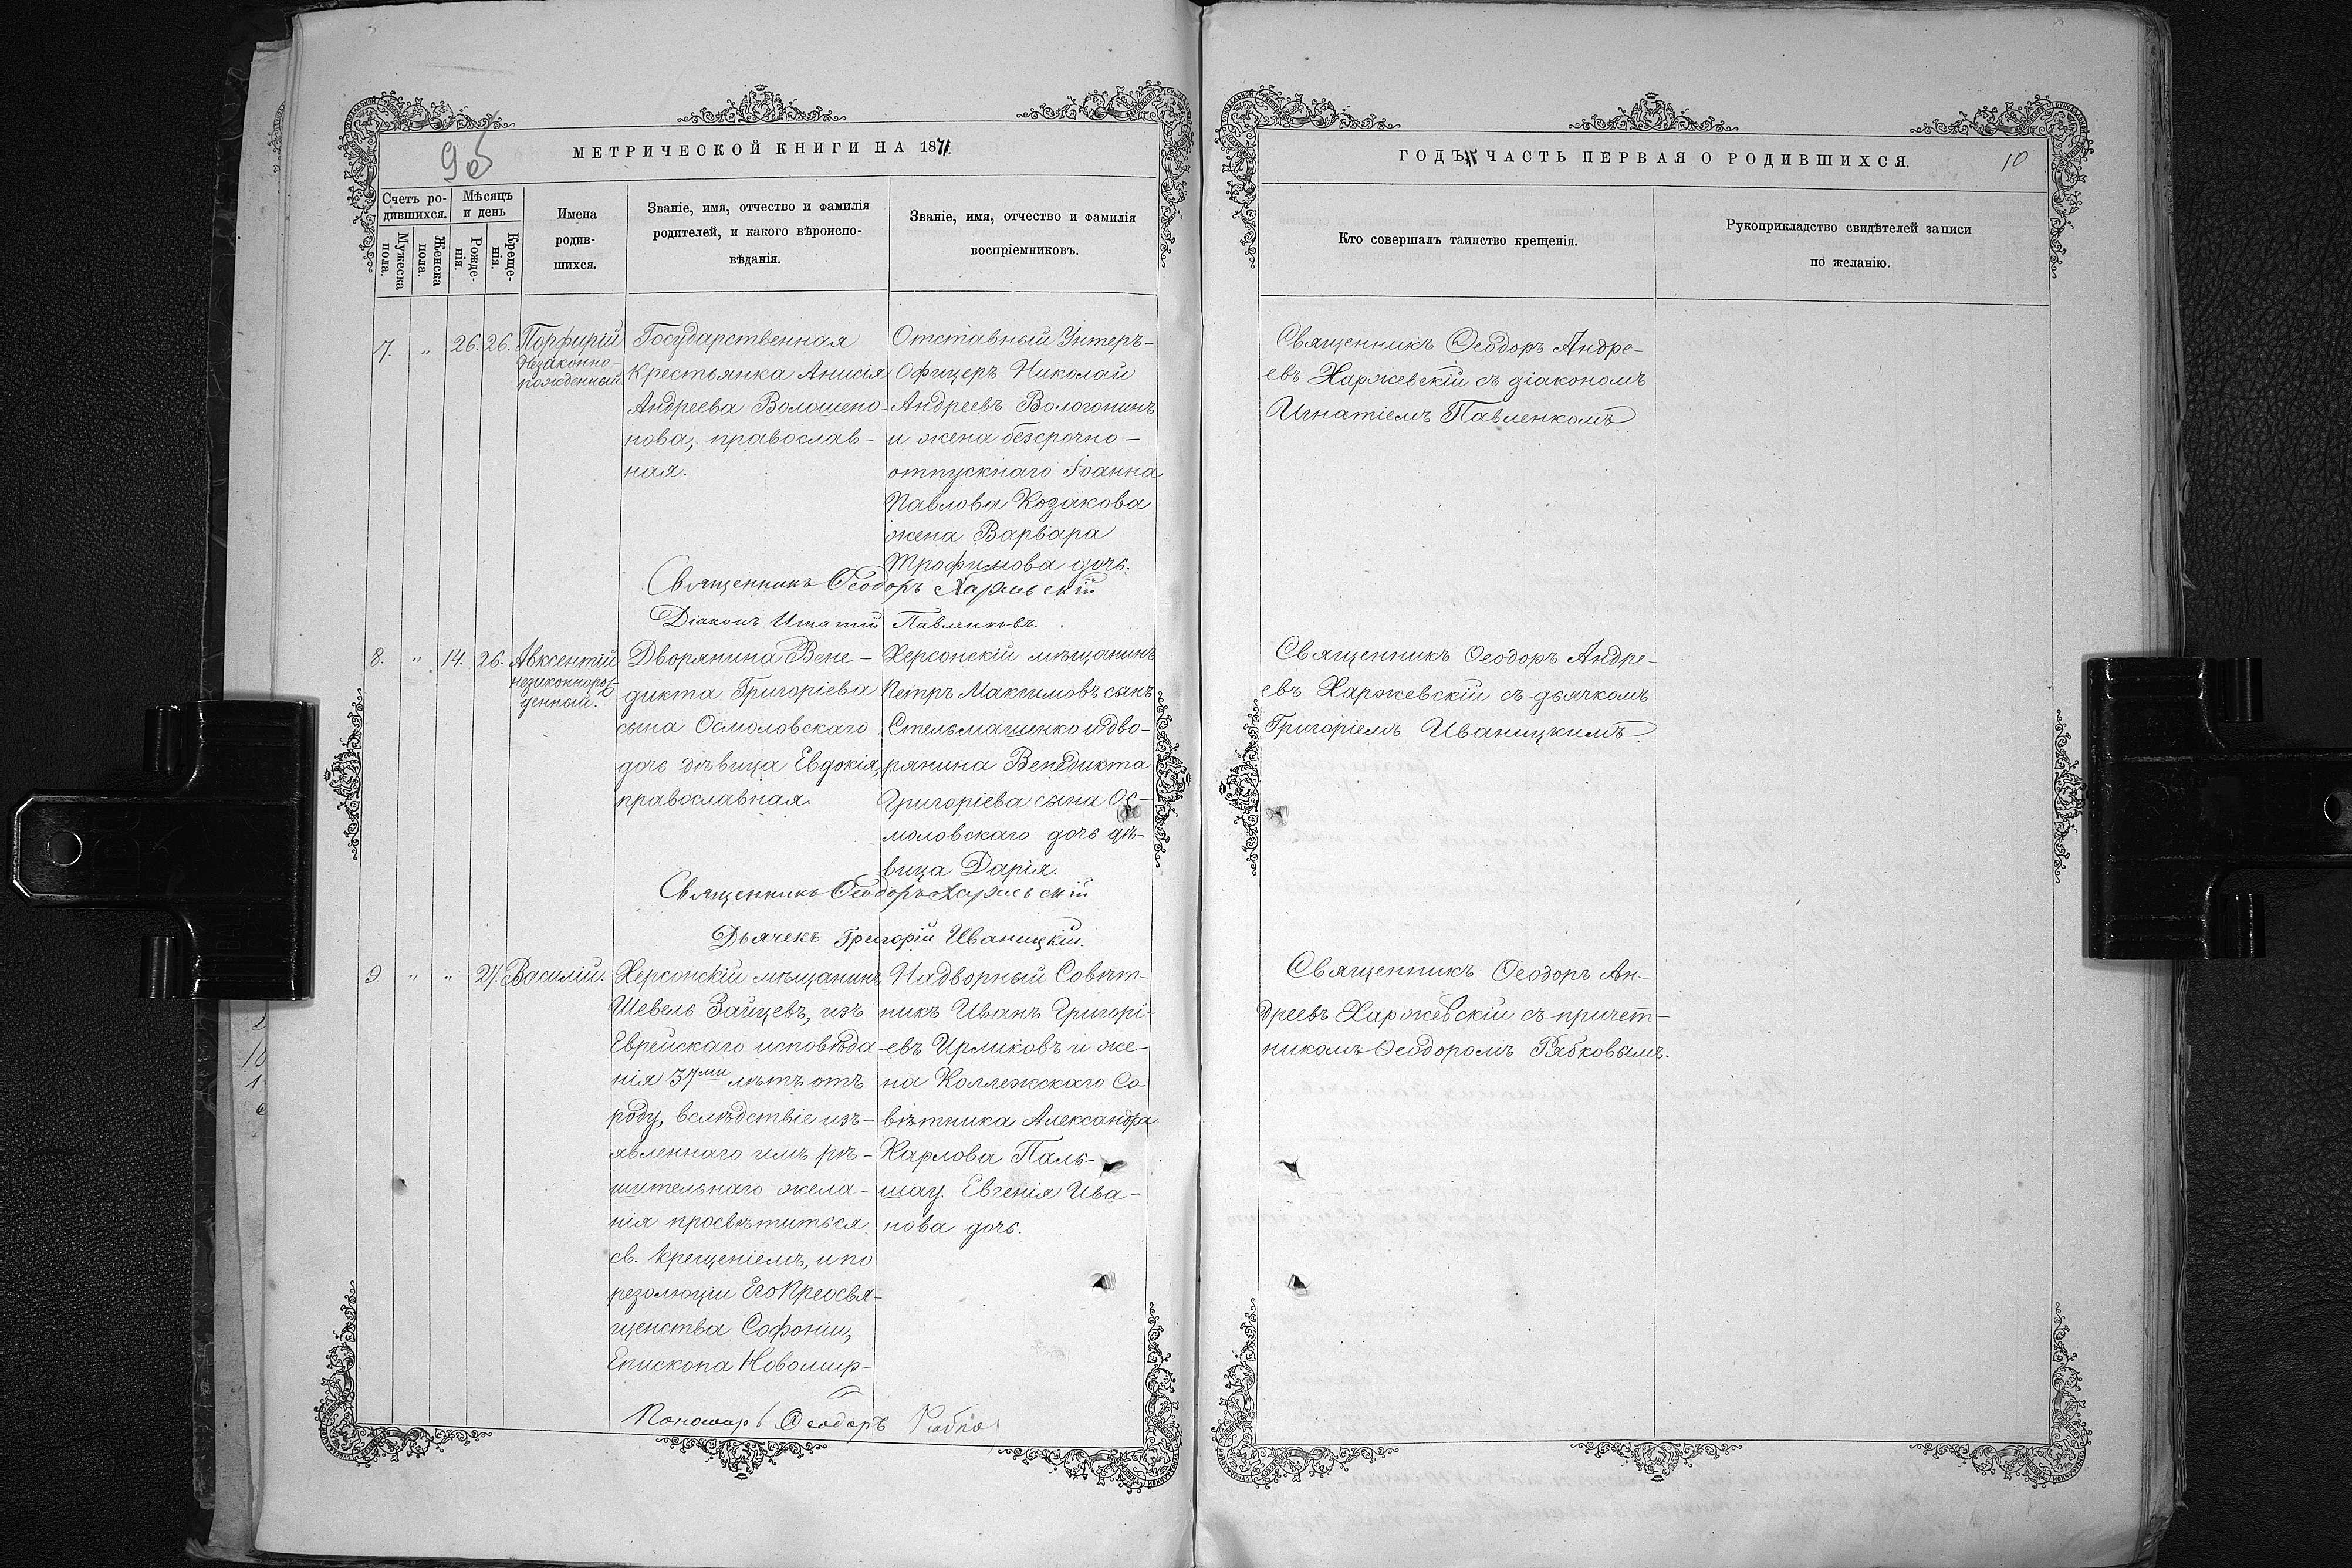 95
МЕТРИЧЕСКОЙ КНИГИ НА 1871
Счетъ ро-
дившихся.
Мужеска пола.
Женска пола.
Мѣсяцъ
и день
Рожде-
нія.
Креще-
нія.
Имена
родив-
шихся.
Званіе, имя, отчество и фамилія
родителей, и какого вѣроиспо-
вѣданія.
Званіе, имя, отчество и фамилія
воспріемниковъ.
7. " 26. 26. Порфирій
Незаконно-
рожденный.
Государственная
Крестьянка Анисія
Андреева Волошено-
нова, православ-
ная.
Отставный Унтеръ-
Офицеръ Николай
Андреевъ Вологонинъ
и жена безсрочно-
отпускнаго Іоанна
Павлова Козакова
жена Варвара
Трофимова дочь.
Священникъ Ѳеодоръ Харжевскій
Діаконъ Игнатій Павленковъ.
8. " 14. 26. Авксентій
незаконнорож-
денный.
Дворянина Вене-
дикта Григоріева
сына Осмоловскаго
дочь дѣвица Евдокія,
православная.
Херсонскій мѣщанинъ
Петръ Максимовъ сынъ
Стельмашенко и дво-
рянина Венедикта
Григоріева сына Ос-
моловскаго дочь дѣ-
вица Дарія.
Священникъ Ѳеодоръ Харжевскій
Дьячекъ Григорій Иваницкій.
9. " " 27. Василій.
Херсонскій мѣщанинъ
Шевель Зайцевъ, изъ
Еврейскаго исповѣда-
нія 37ми лѣтъ отъ
роду, вслѣдствіе изъ-
явленнаго имъ рѣ-
шительнаго жела-
нія просвѣтиться
св. Крещеніемъ, и по
резолюціи Его Преосвя-
щенства Софоніи,
Епископа Новомир-
Надворный Совѣт-
никъ Иванъ Григорі-
евъ Ирликовъ и же-
на Коллежскаго Со-
вѣтника Александра
Карлова Паль-
шау. Евгенія Ива-
нова дочь.
Пономарь Ѳеодоръ Рябко
ГОДЪ ЧАСТЬ ПЕРВАЯ О РОДИВШИХСЯ.
10
Кто совершалъ таинство крещенія.
Рукоприкладство свидѣтелей записи
по желанію.
Священникъ Ѳеодоръ Андре-
евъ Харжевскій съ діакономъ
Игнатіемъ Павленкомъ
Священникъ Ѳеодоръ Андре-
евъ Харжевскій съ дьячкомъ
Григоріемъ Иваницкимъ.
Священникъ Ѳеодоръ Ан-
дреевъ Харжевскій съ причет-
никомъ Ѳеодоромъ Рябковымъ.